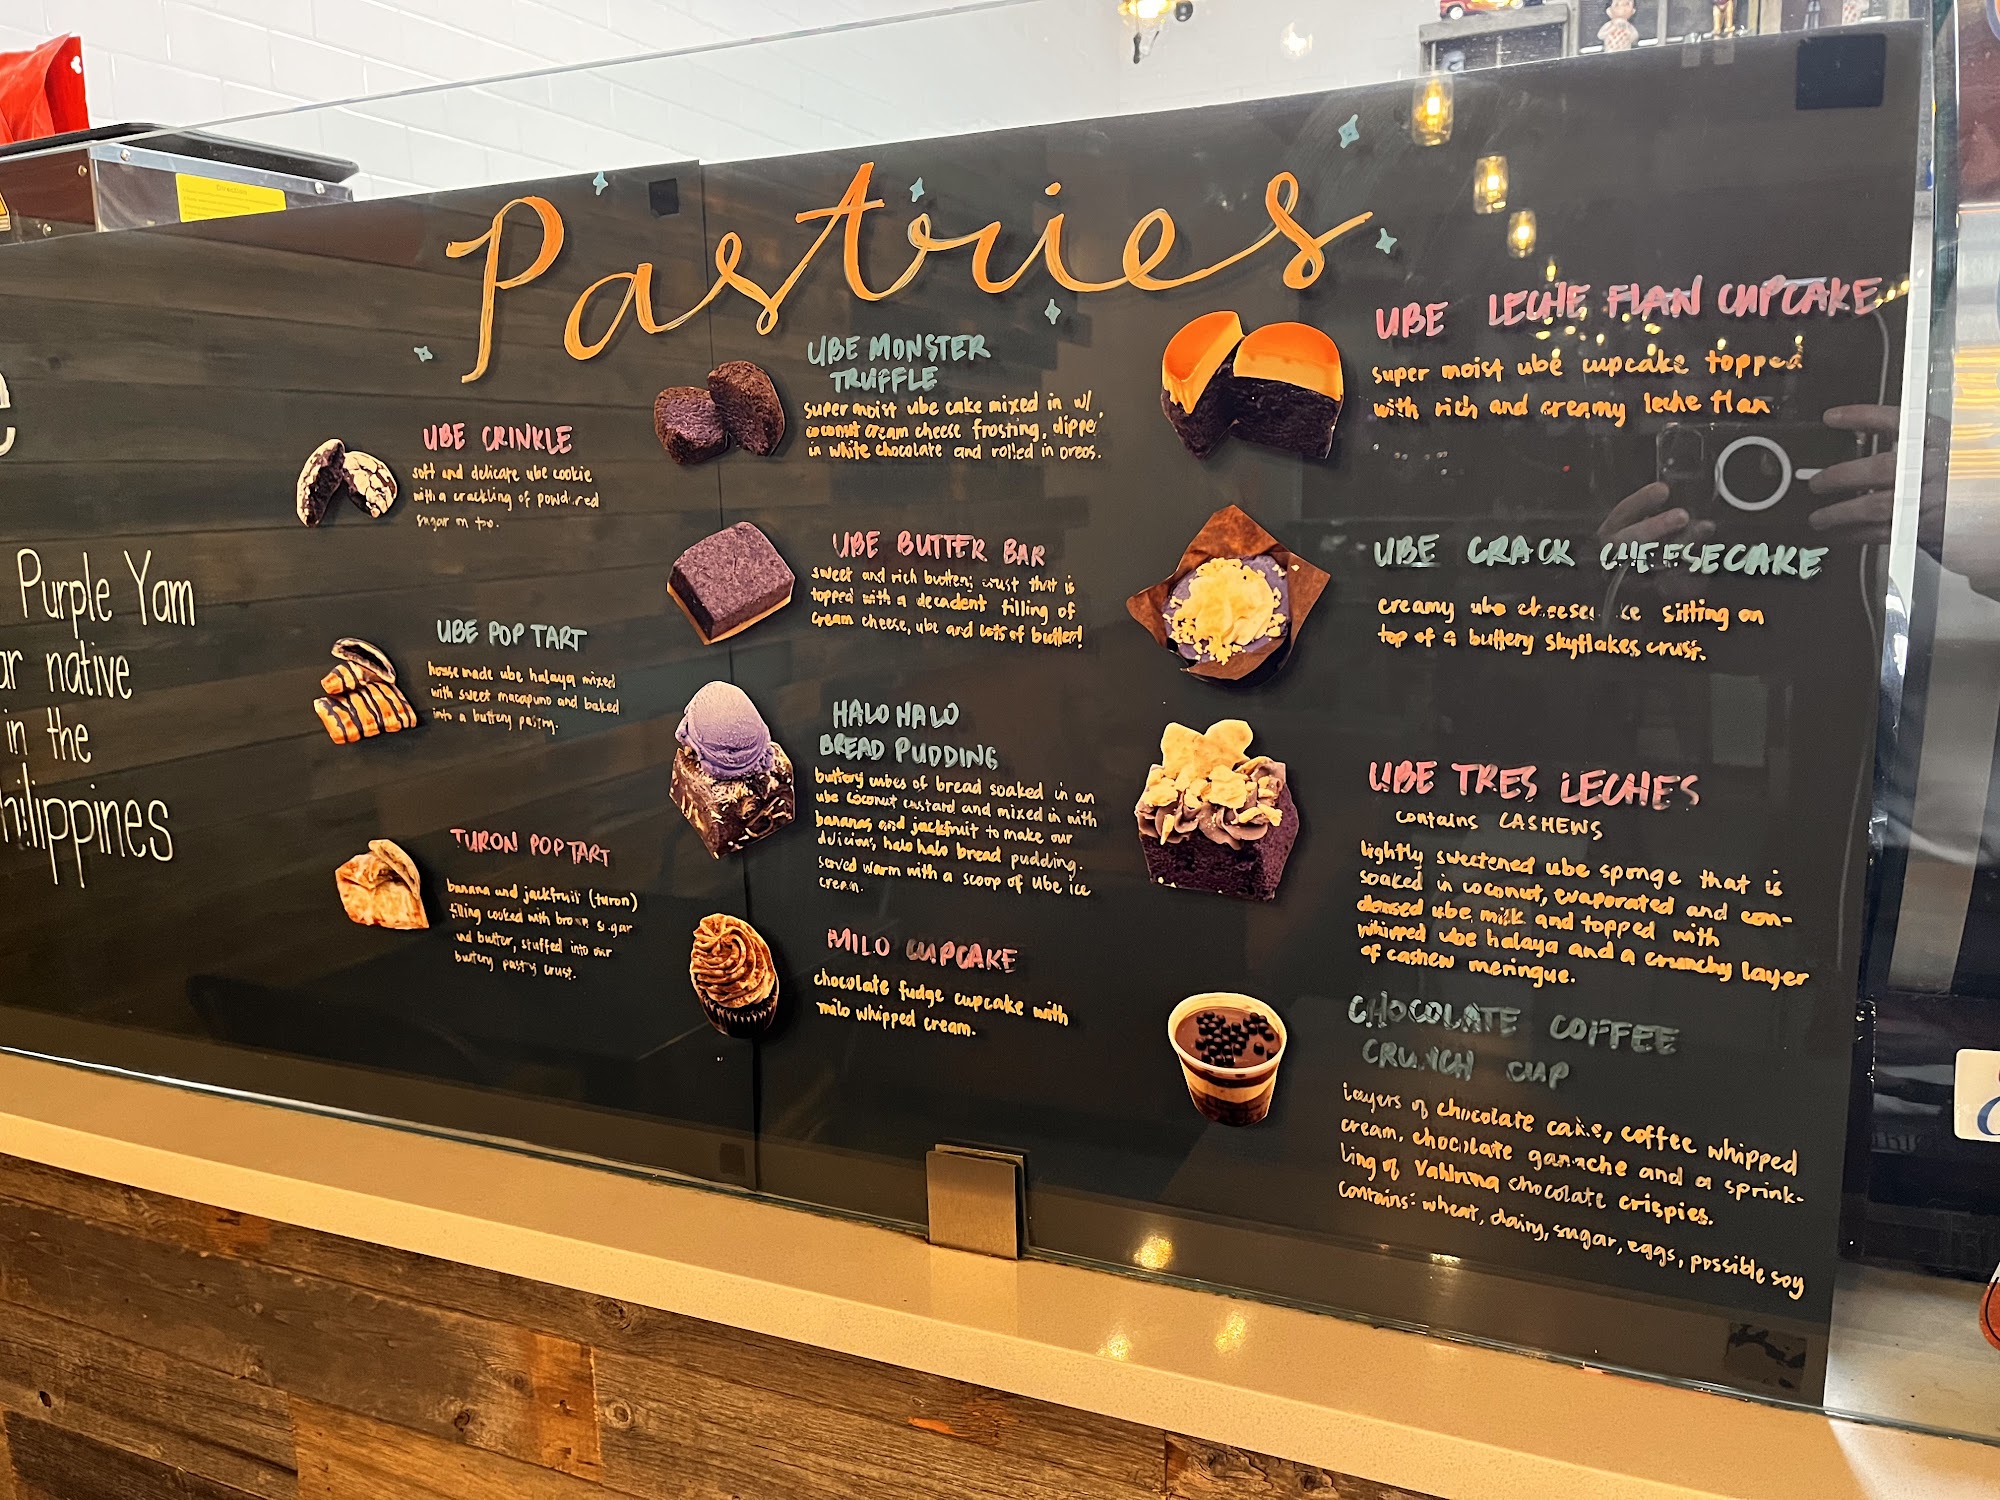 Pastries
Purple Yam
native
in the
UBE CRINKLE
soft and delicate ube cookie
with a crackling of powdered
sugar on top.
UBE POP TART
housemade ube halaya mixed
with sweet macapuno and baked
into a buttery pastry.
TURON POP TART
banana and jackfruit (turon)
filling cooked with brown sugar
and butter, stuffed into our
buttery pastry crust.
UBE MONSTER
TRUFFLE
super moist ube cake mixed in w/
coconut cream cheese frosting, dipped
in white chocolate and rolled in oreos.
UBE BUTTER BAR
sweet and rich buttery crust that is
topped with a decadent filling of
cream cheese, ube and lots of butter!
HALO HALO
BREAD PUDDING
buttery cubes of bread soaked in an
ube coconut custard and mixed in with
bananas and jackfruit to make our
delicious halo halo bread pudding.
served warm with a scoop of ube ice
cream.
MILO CUPCAKE
chocolate fudge cupcake with
milo whipped cream.
UBE LECHE FLAN CUPCAKE
super moist ube cupcake topped
with rich and creamy leche flan
UBE CRACK CHEESECAKE
creamy ube cheesecake sitting on
top of a buttery skyflakes crust.
UBE TRES LECHES
contains CASHEWS
lightly sweetened ube sponge that is
soaked in coconut, evaporated and con-
densed ube milk and topped with
whipped ube halaya and a crunchy layer
of cashew meringue.
CHOCOLATE COFFEE
CRUNCH CUP
layers of chocolate cake, coffee whipped
cream, chocolate ganache and a sprink-
ling of Valhrona chocolate crispies.
contains: wheat, dairy, sugar, eggs, possible soy